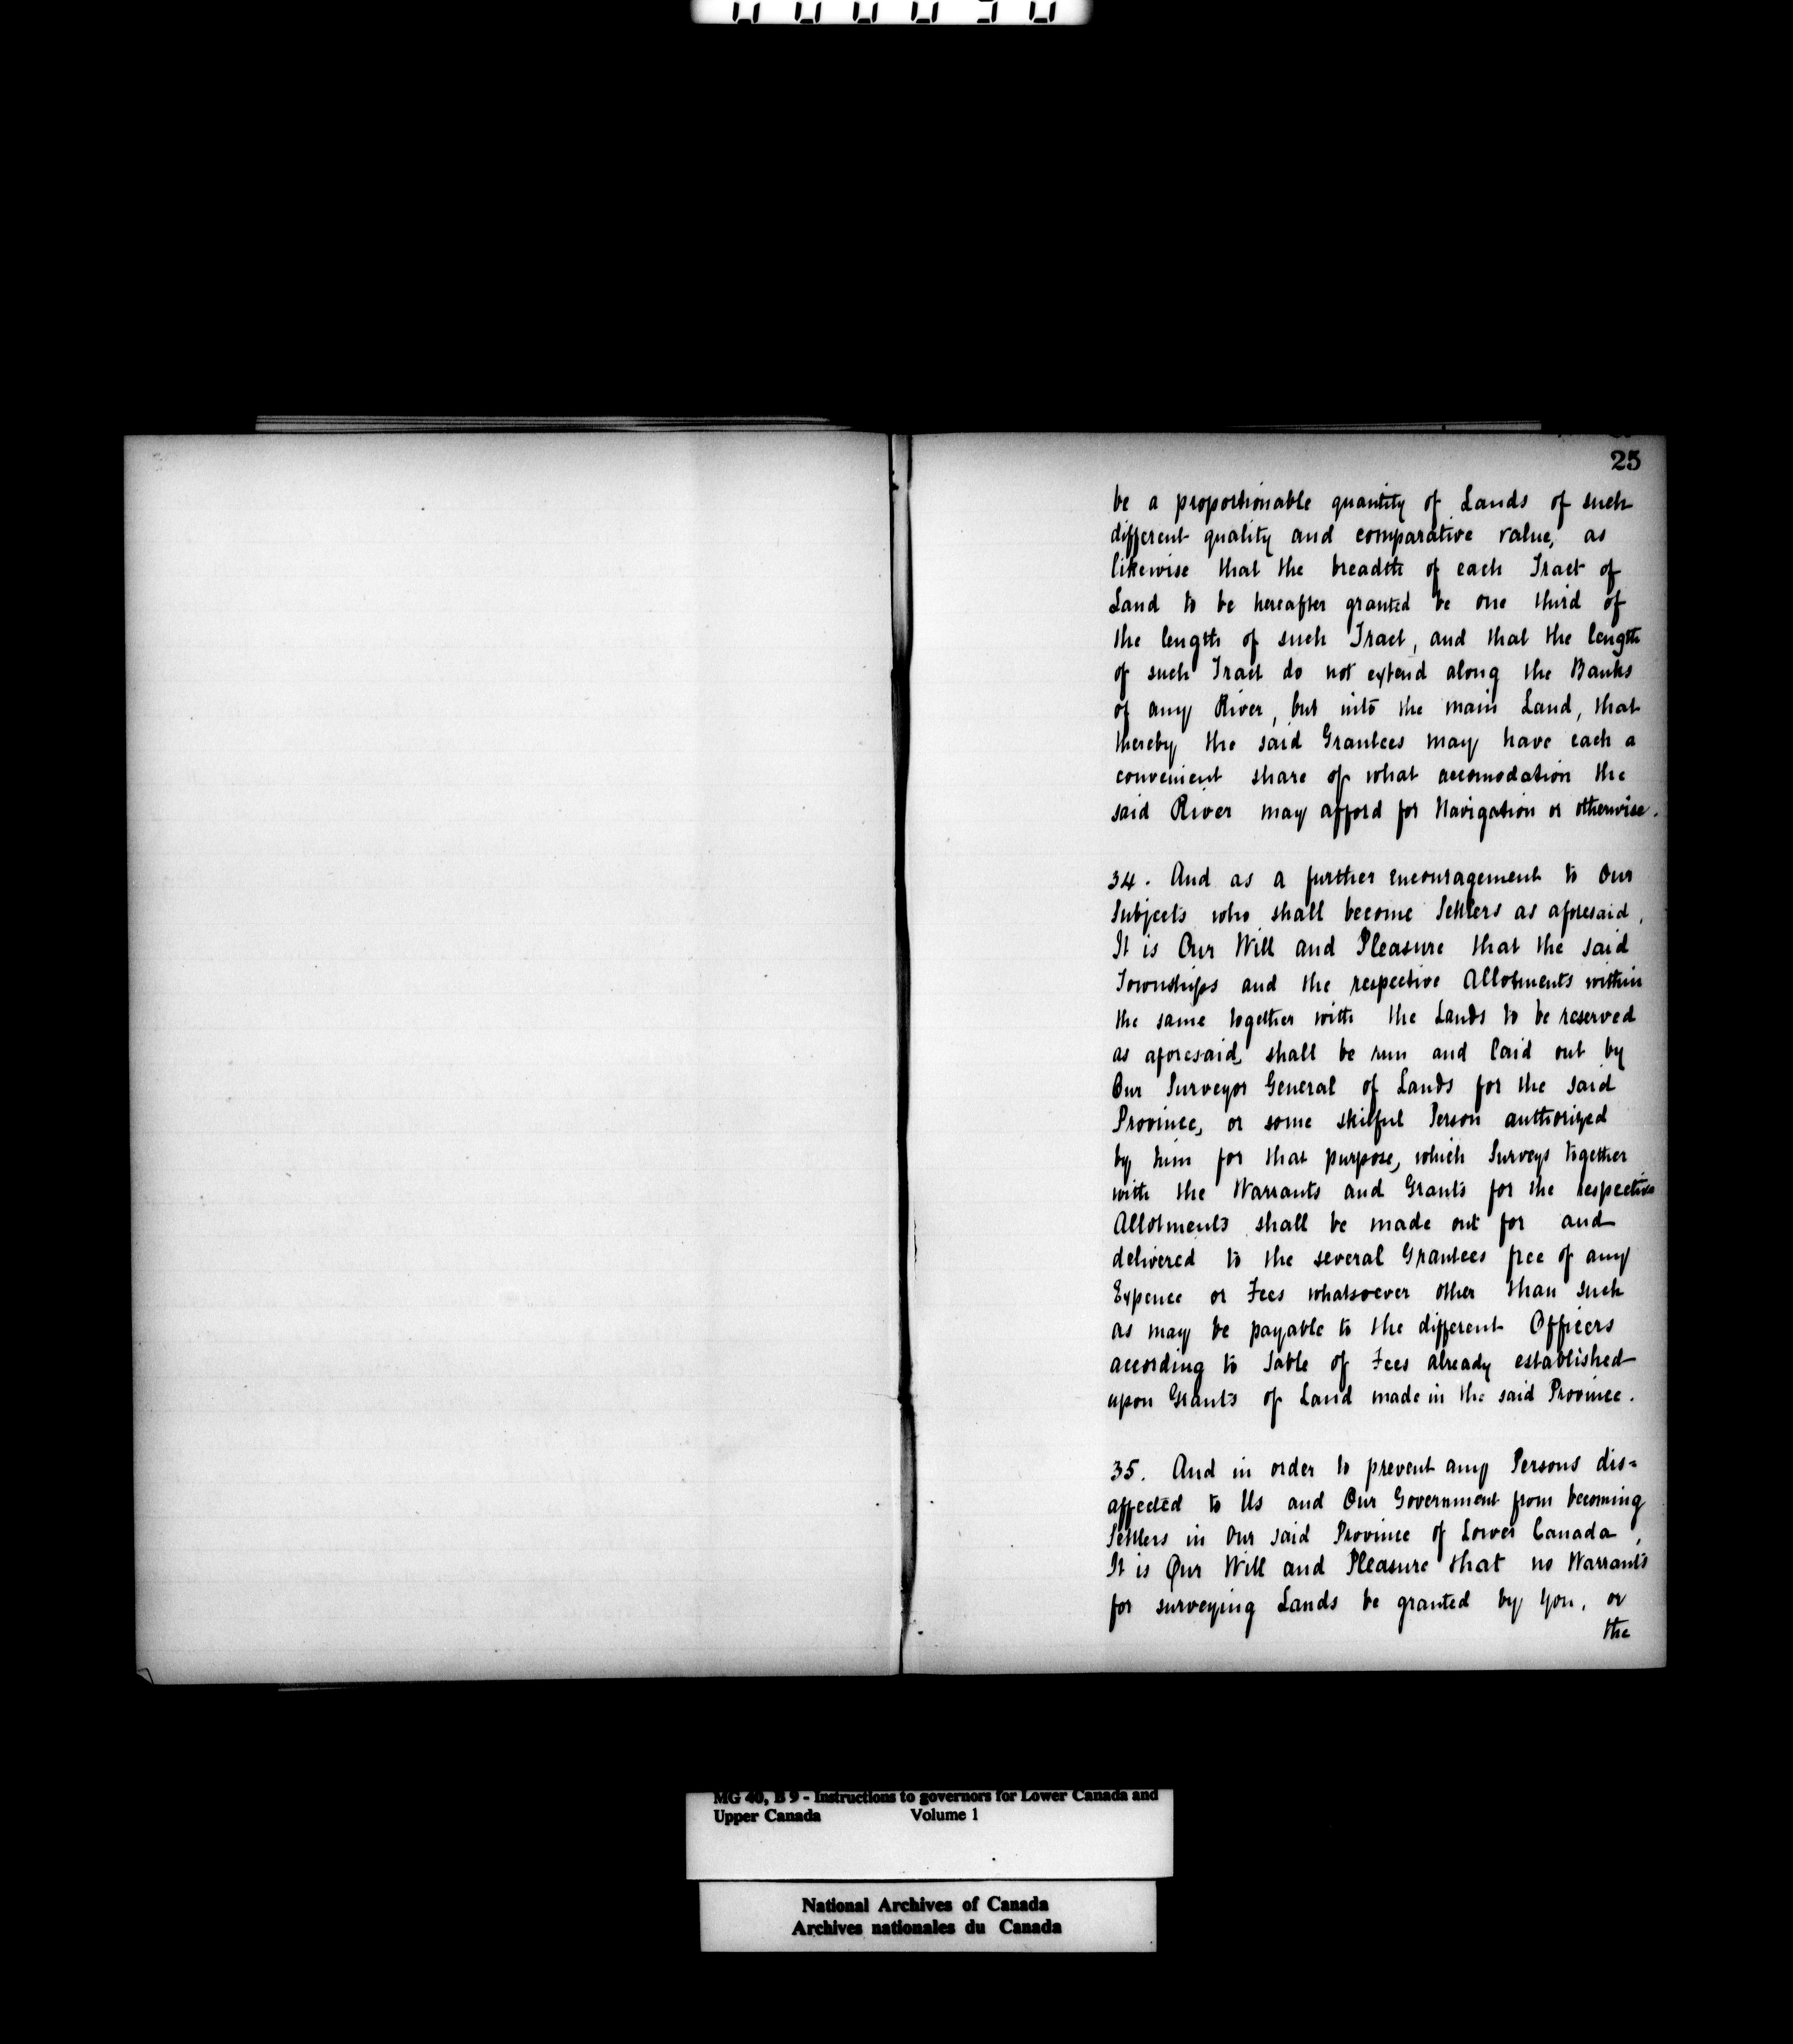 25
be a proportionable quantity of Lands of such
different quality and comparative value, as
likewise that the breadth of each Tract of
Land to be hereafter granted be one third of
the length of such Tract, and that the length
of such Tract do not extend along the Banks
of any River, but into the main Land, that
thereby the said Grantees may have each a
convenient share of what accomodation the
said River may afford for Navigation or otherwise.
34. And as a further encouragement to Our
Subjects who shall become Settlers as aforesaid,
It is Our Will and Pleasure that the said
Townships and the respective Allotments within
the same together with the Lands to be reserved
as aforesaid, shall be run and laid out by
Our Surveyor General of Lands for the said
Province, or some skilful Person authorized
by him for that purpose, which Surveys together
with the Warrants and Grants for the respective
Allotments shall be made out for and
delivered to the several Grantees free of any
Expence or Fees whatsoever other than such
as may be payable to the different Officers
according to Table of Fees already established
upon Grants of Land made in the said Province.
35. And in order to prevent any Persons dis=
affected to Us and Our Government from becoming
Settlers in Our said Province of Lower Canada,
It is Our Will and Pleasure that no Warrants
for surveying Lands be granted by You, or
the
MG 40, B 9 - Instructions to governors for Lower Canada and
Upper Canada Volume 1
National Archives of Canada
Archives nationales du Canada